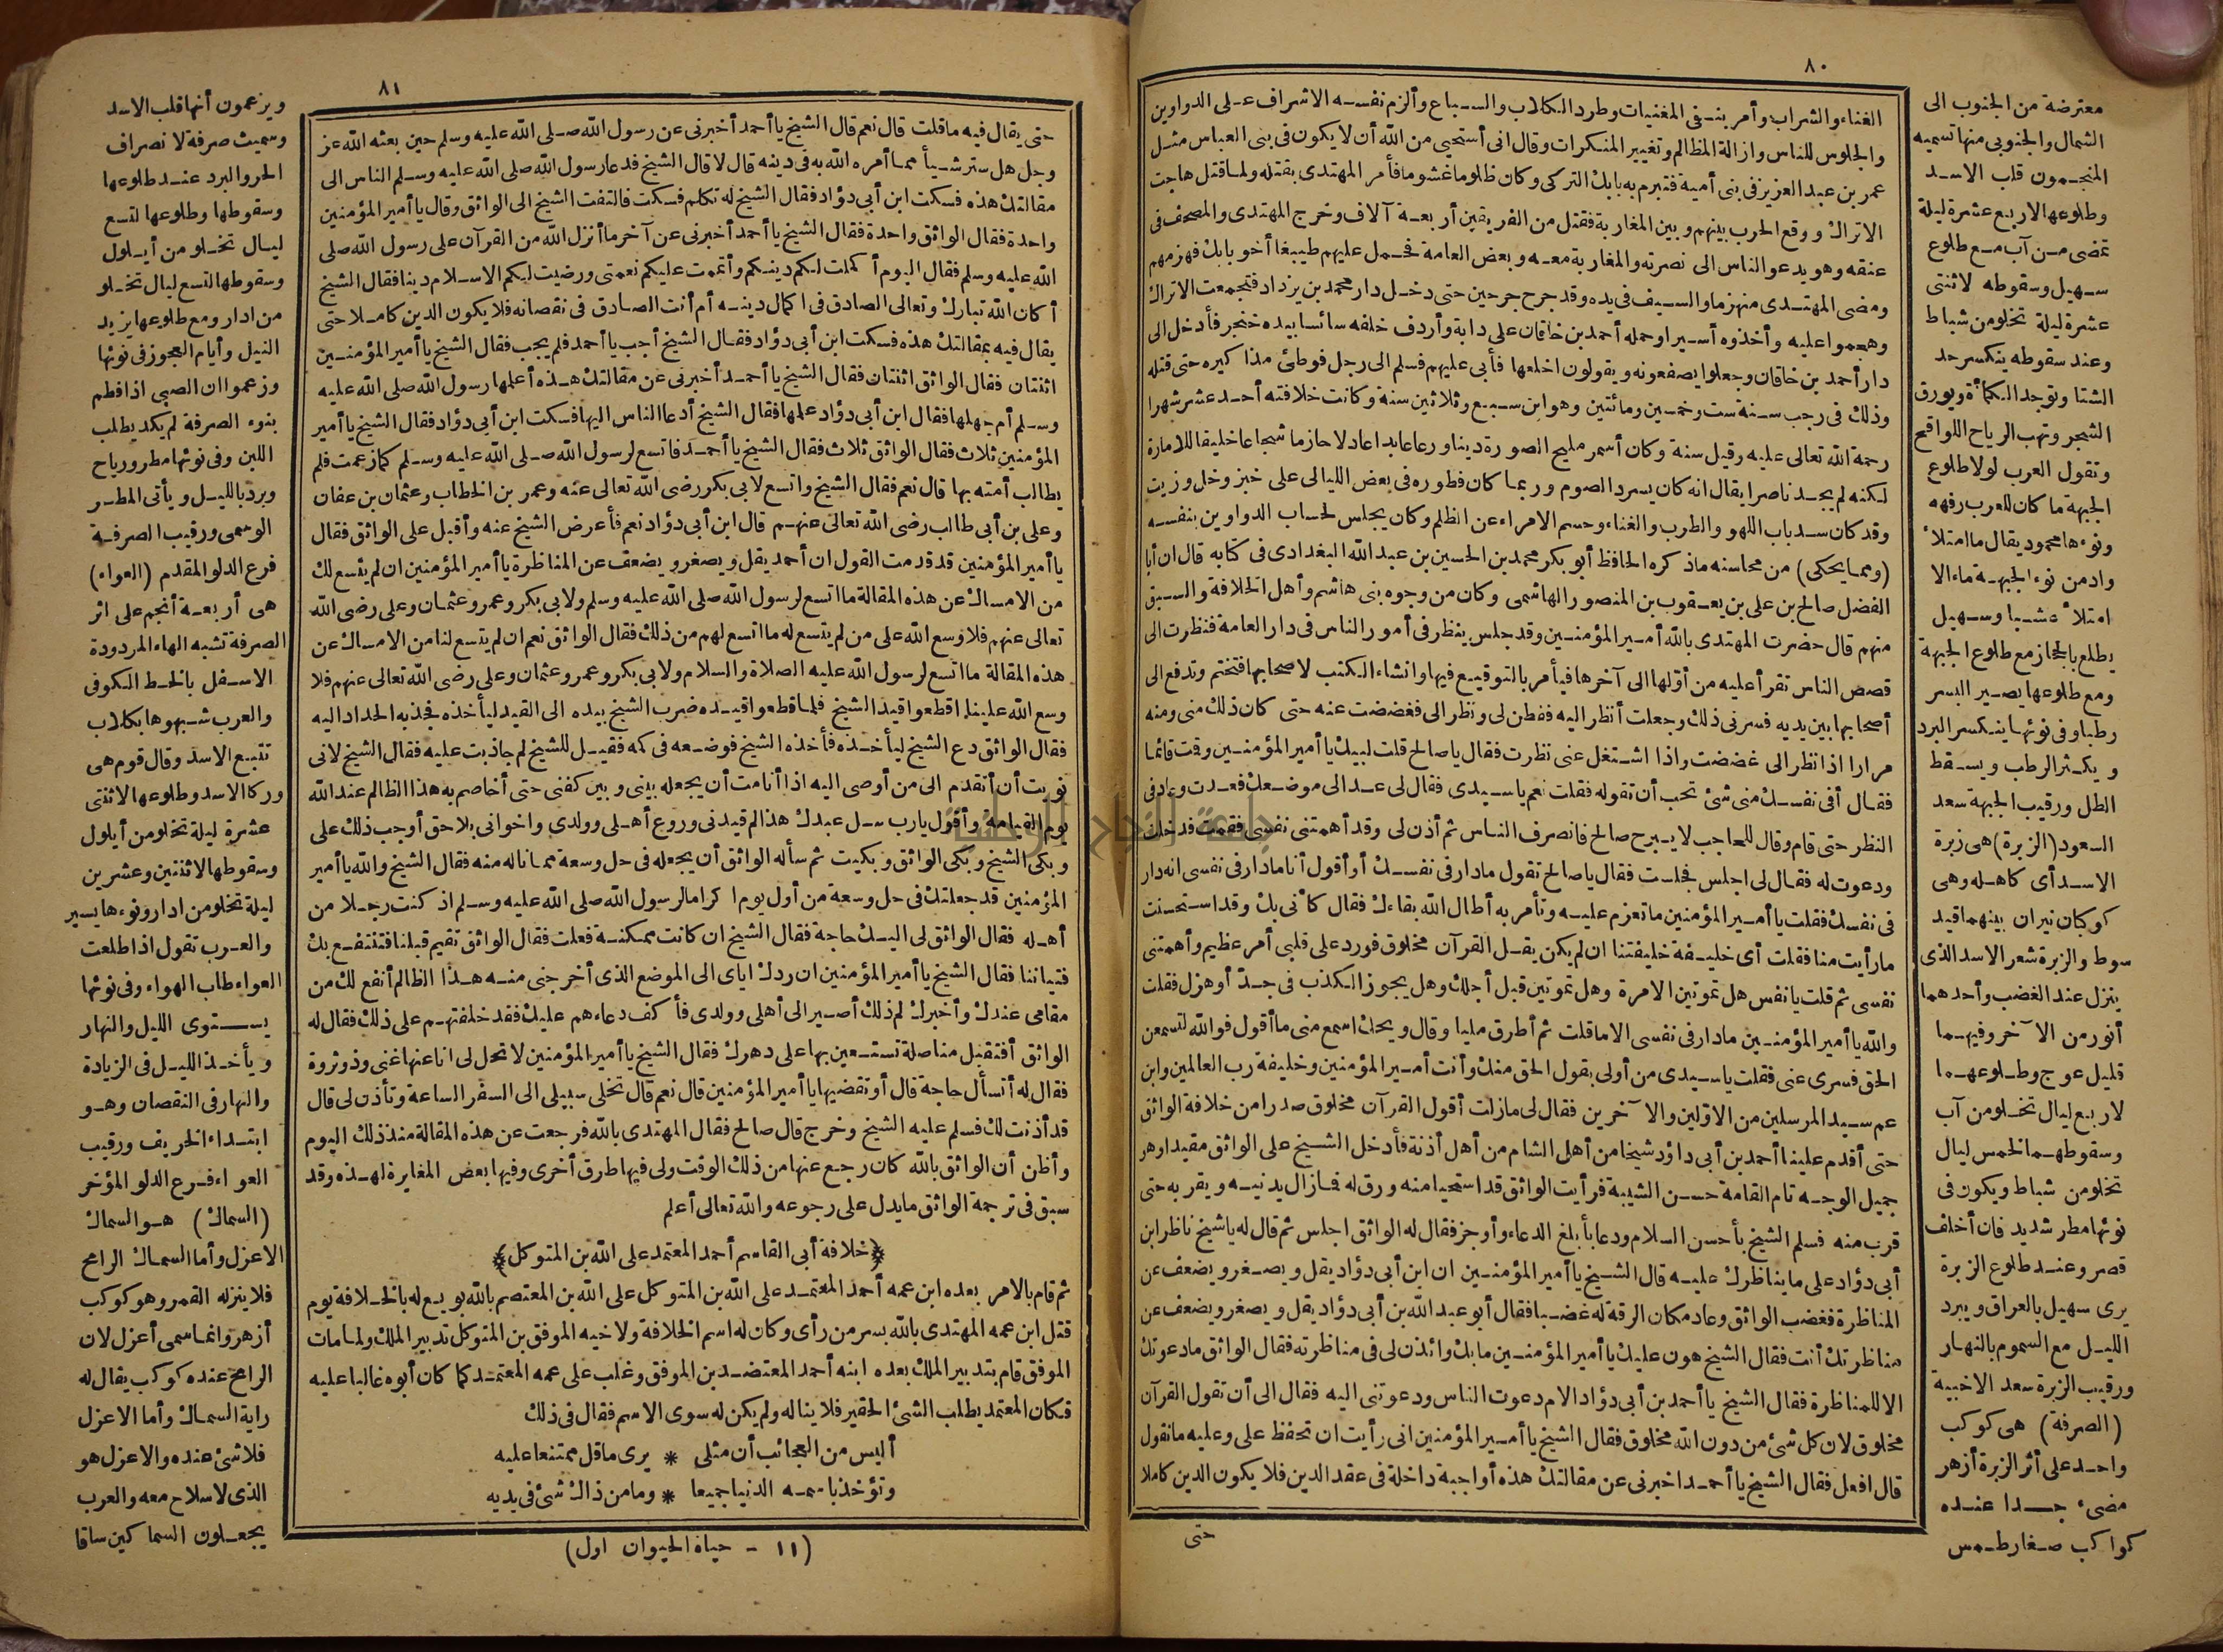 ٨٠
الغناء والشراب وأمر بنفى المغنيات وطرد الكلاب والسباع وألزم نفسه الاشراف على الدواوين
والجلوس للناس وازالة المظالم وتغيير المنكرات وقال انى أستحيى من الله أن لا يكون فى بنى العباس مثل
عمر بن عبد العزيز فى بنى أمية فتبرم به بابك التركى وكان ظلوما غشوما فأمر المهتدى بقتله ولما قتل هاجت
الاتراك ووقع الحرب بينهم وبين المغاربة فقتل من الفريقين أربعة آلاف وخرج المهتدى والمصحف فى
عنقه وهو يدعو الناس الى نصرته والمغاربة معه وبعض العامة فحمل عليهم طيبغا أخو بابك فهزمهم
ومضى المهتدى منهزما والسيف فى يده وقد جرح جرحين حتى دخل دار محمد بن يزداد فتجمعت الاتراك
وهجموا عليه وأخذوه أسيرا وحمله أحمد بن خاقان على دابة وأردف خلفه سائسا بيده خنجر فأدخل الى
دار أحمد بن خاقان وجعلوا يصفعونه ويقولون اخلعها فأبى عليهم فسلم الى رجل فوطئ مذاكيره حتى قتله
وذلك فى رجب سنة ست وخمسين ومائتين وهو ابن سبع وثلاثين سنة وكانت خلافته أحد عشر شهرا
رحمة الله تعالى عليه وقيل سنة وكان أسمر مليح الصورة دينا ورعا عابدا عادلا حازما شجاعا خليقا للامارة
لكنه لم يجد ناصرا يقال انه كان يسرد الصوم وربما كان فطوره فى بعض الليالى على خبز وخل وزيت
وقد كان سد باب اللهو والطرب والغناء وحسم الامراء عن الظلم وكان يجلس لحساب الدواوين بنفسه
(ومما يحكى) من محاسنه ماذكره الحافظ أبو بكر محمد بن الحسين بن عبد الله البغدادى فى كتابه قال ان أبا
الفضل صالح بن على بن يعقوب بن المنصور الهاشمى وكان من وجوه بنى هاشم وأهل الخلافة والسبق
منهم قال حضرت المهتدى بالله أمير المؤمنين وقد جلس ينظر فى أمور الناس فى دار العامة فنظرت الى
قصص الناس تقرأ عليه من أولها الى آخرها فيأمر بالتوقيع فيها وانشاء الكتب لاصحابها فتختم وتدفع الى
أصحابها بين يديه فسرنى ذلك وجعلت أنظر اليه ففطن لى ونظر الى فغضضت عنه حتى كان ذلك منى ومنه
مرارا اذا نظر الى غضضت واذا اشتغل عنى نظرت فقال يا صالح قلت لبيك يا أمير المؤمنين وقت قائما
فقال أفى نفسك منى شئ تحب أن تقوله فقلت نعم يا سيدى فقال لى عد الى موضعك فعدت وعاد فى
النظر حتى قام وقال للحاجب لا يبرح صالح فانصرف الناس ثم أذن لى وقد أهمتنى نفسى فقمت فدخلت
ودعوت له فقال لى اجلس فجلست فقال يا صالح تقول مادار فى نفسك أو أقول أنا مادار فى نفسى انه دار
فى نفسك فقلت يا أمير المؤمنين ما تعزم عليه وتأمر به أطال الله بقاءك فقال كأنى بك وقد استحسنت
ما رأيت منا فقلت أى خليفة خليفتنا ان لم يكن يقل القرآن مخلوق فورد على قلبى أمر عظيم وأهمتنى
نفسى ثم قلت يا نفس هل تموتين الامرة وهل تموتين قبل أجلك وهل يجوز الكذب فى جد أو هزل فقلت
والله يا أمير المؤمنين مادار فى نفسى الا ما قلت ثم أطرق مليا وقال ويحك اسمع منى ما أقول فوالله لتسمعن
الحق فسرى عنى فقلت يا سيدى من أولى بقول الحق منك وأنت أمير المؤمنين وخليفة رب العالمين وابن
عم سيد المرسلين من الاولين والآخرين فقال لى مازلت أقول القرآن مخلوق صدرا من خلافة الواثق
حتى أقدم علينا أحمد بن أبى داؤد شيخا من أهل الشام من أهل أذنة فأدخل الشيخ على الواثق مقيدا وهو
جميل الوجه تام القامة حسن الشيبة فرأيت الواثق قد استحيا منه ورق له فمازال يدنيه ويقربه حتى
قرب منه فسلم الشيخ بأحسن السلام ودعا بأبلغ الدعاء وأوجز فقال له الواثق اجلس ثم قال له يا شيخ ناظر ابن
أبى دؤاد على ما يناظرك عليه قال الشيخ يا أمير المؤمنين ان ابن أبى دؤاد يقل ويصغر ويضعف عن
المناظرة فغضب الواثق وعاد مكان الرقة له غضبا فقال أبو عبد الله بن أبى دؤاد يقل ويصغر ويضعف عن
مناظرتك أنت فقال الشيخ هون عليك يا أمير المؤمنين مابك وائذن لى فى مناظرته فقال الواثق مادعوتك
الا للمناظرة فقال الشيخ يا أحمد بن أبى دؤاد الام دعوت الناس ودعوتنى اليه فقال الى أن تقول القرآن
مخلوق لان كل شئ من دون الله مخلوق فقال الشيخ يا أمير المؤمنين انى رأيت ان تحفظ على وعليه ما نقول
قال افعل فقال الشيخ يا أحمد اخبرنى عن مقالتك هذه أواجبة داخلة فى عقد الدين فلا يكون الدين كاملا
حتى
معترضة من الجنوب الى
الشمال والجنوبى منها تسميه
المنجمون قلب الاسد
وطلوعها لاربع عشرة ليلة
تمضى من آب مع طلوع
سهيل وسقوطه لاثنتى
عشرة ليلة تخلو من شباط
وعند سقوطه ينكسر حد
الشتا وتوجد الكمأة ويورق
الشجر وتهب الرياح اللواقح
وتقول العرب لولا طلوع
الجبهة ما كان للعرب رفهه
ونوءها محمود يقال ما امتلأ
واد من نوء الجبهة ماء الا
امتلأ عشبا وسهيل
يطلع بالحجاز مع طلوع الجبهة
ومع طلوعها يصير البسر
رطبا وفى نوئها ينكسر البرد
ويكثر الرطب ويسقط
الطل ورقيب الجبهة سعد
السعود (الزبرة) هى زبرة
الاسد أى كاهله وهى
كوكبان نيران بينهما قيد
سوط والزبرة شعر الاسد الذى
ينزل عند الغضب وأحدهما
أنور من الآخر وفيهما
قليل عوج وطلوعهما
لاربع ليال تخلو من آب
وسقوطهما لخمس ليال
تخلو من شباط ويكون فى
نوئها مطر شديد فان أخلف
قصر وعند طلوع الزبرة
يرى سهيل بالعراق ويبرد
الليل مع السموم بالنهار
ورقيب الزبرة سعد الاخبية
(الصرفة) هى كوكب
واحد على أثر الزبرة أزهر
مضىء جدا عنده
كواكب صغار طمس
٨١
حتى يقال فيه ما قلت قال نعم قال الشيخ يا أحمد أخبرنى عن رسول الله صلى الله عليه وسلم حين بعثه الله عز
وجل هل ستر شيأ مما أمره الله به فى دينه قال لا قال الشيخ فدعا رسول الله صلى الله عليه وسلم الناس الى
مقالتك هذه فسكت ابن أبى دؤاد فقال الشيخ له تكلم فسكت فالتفت الشيخ الى الواثق وقال يا أمير المؤمنين
واحدة فقال الواثق واحدة فقال الشيخ يا أحمد أخبرنى عن آخر ما أنزل الله من القرآن على رسول الله صلى
الله عليه وسلم فقال اليوم أكملت لكم دينكم وأتممت عليكم نعمتى ورضيت لكم الاسلام دينا فقال الشيخ
أكان الله تبارك وتعالى الصادق فى اكمال دينه أم أنت الصادق فى نقصانه فلا يكون الدين كاملا حتى
يقال فيه بمقالتك هذه فسكت ابن أبى دؤاد فقال الشيخ أجب يا أحمد فلم يجب فقال الشيخ يا أمير المؤمنين
اثنتان فقال الواثق اثنتان فقال الشيخ يا أحمد أخبرنى عن مقالتك هذه أعلمها رسول الله صلى الله عليه
وسلم أم جهلها فقال ابن أبى دؤاد علمها فقال الشيخ أدعا الناس اليها فسكت ابن أبى دؤاد فقال الشيخ يا أمير
المؤمنين ثلاث فقال الواثق ثلاث فقال الشيخ يا أحمد فاتسع لرسول الله صلى الله عليه وسلم كما زعمت فلم
يطالب أمته بها قال نعم فقال الشيخ واتسع لابى بكر رضى الله تعالى عنه وعمر بن الخطاب وعثمان بن عفان
وعلى بن أبى طالب رضى الله تعالى عنهم قال ابن أبى دؤاد نعم فأعرض الشيخ عنه وأقبل على الواثق فقال
يا أمير المؤمنين قد قدمت القول ان أحمد يقل ويصغر ويضعف عن المناظرة يا أمير المؤمنين ان لم يتسع لك
من الامساك عن هذه المقالة ما اتسع لرسول الله صلى الله عليه وسلم ولابى بكر وعمر وعثمان وعلى رضى الله
تعالى عنهم فلا وسع الله على من لم يتسع له ما اتسع لهم من ذلك فقال الواثق نعم ان لم يتسع لنا من الامساك عن
هذه المقالة ما اتسع لرسول الله عليه الصلاة والسلام ولابى بكر وعمر وعثمان وعلى رضى الله تعالى عنهم فلا
وسع الله علينا اقطعوا قيد الشيخ فلما قطعوا قيده ضرب الشيخ بيده الى القيد ليأخذه فجذبه الحداد اليه
فقال الواثق دع الشيخ ليأخذه فأخذه الشيخ فوضعه فى كمه فقيل للشيخ لم جاذبت عليه فقال الشيخ لانى
نويت أن أتقدم الى من أوصى اليه اذا أنامت أن يجعله بينى وبين كفنى حتى أخاصم به هذا الظالم عند الله
يوم القيامة وأقول يارب سل عبدك هذا لم قيدنى وروع أهلى وولدى واخوانى بلا حق أوجب ذلك على
وبكى الشيخ وبكى الواثق وبكيت ثم سأله الواثق أن يجعله فى حل وسعة مما ناله منه فقال الشيخ والله يا أمير
المؤمنين قد جعلتك فى حل وسعة من أول يوم اكراما لرسول الله صلى الله عليه وسلم اذ كنت رجلا من
أهله فقال الواثق لى اليك حاجة فقال الشيخ ان كانت ممكنة فعلت فقال الواثق تقيم قبلنا فتنتفع بك
فتياننا فقال الشيخ يا أمير المؤمنين ان ردك اياى الى الموضع الذى أخرجنى منه هذا الظالم أنفع لك من
مقامى عندك وأخبرك لم ذلك أصير الى أهلى وولدى فأكف دعاءهم عليك فقد خلفتهم على ذلك فقال له
الواثق أفتقبل منا صلة تستعين بها على دهرك فقال الشيخ يا أمير المؤمنين لا تحل لى انا عنها غنى وذو ثروة
فقال له أتسأل حاجة قال أو تقضيها يا أمير المؤمنين قال نعم قال تخلى سبيلى الى السفر الساعة وتأذن لى قال
قد أذنت لك فسلم عليه الشيخ وخرج قال صالح فقال المهتدى بالله فرجعت عن هذه المقالة منذ ذلك اليوم
وأظن أن الواثق بالله كان رجع عنها من ذلك الوقت ولى فيها طرق أخرى وفيها بعض المغايرة لهذه وقد
سبق فى ترجمة الواثق ما يدل على رجوعه والله تعالى أعلم
﴿خلافة أبى القاسم أحمد المعتمد على الله بن المتوكل﴾
ثم قام بالامر بعده ابن عمه أحمد المعتمد على الله بن المتوكل على الله بن المعتصم بالله بويع له بالخلافة يوم
قتل ابن عمه المهتدى بالله بسر من رأى وكان له اسم الخلافة ولاخيه الموفق بن المتوكل تدبير الملك ولما مات
الموفق قام بتدبير الملك بعده ابنه أحمد المعتضد بن الموفق وغلب على عمه المعتمد كما كان أبوه غالبا عليه
فكان المعتمد يطلب الشئ الحقير فلا يناله ولم يكن له سوى الاسم فقال فى ذلك
أليس من العجائب أن مثلى * يرى ما قل ممتنعا عليه
وتؤخذ باسمه الدنيا جميعا * وما من ذاك شئ فى يديه
(١١ - حياة الحيوان اول)
ويزعمون أنها قلب الاسد
وسميت صرفة لانصراف
الحر والبرد عند طلوعها
وسقوطها وطلوعها لتسع
ليال تخلو من أيلول
وسقوطها لتسع ليال تخلو
من ادار ومع طلوعها يزيد
النيل وأيام العجوز فى نوئها
وزعموا ان الصبى اذا فطم
بنوء الصرفة لم يكد يطلب
اللبن وفى نوئها مطر ورياح
وبرد بالليل ويأتى المطر
الوسمى ورقيب الصرفة
فرع الدلو المقدم (العواء)
هى أربعة أنجم على اثر
الصرفة تشبه الهاء المردودة
الاسفل بالخط الكوفى
والعرب شبهوها بكلاب
تتبع الاسد وقال قوم هى
وركا الاسد وطلوعها لاثنتى
عشرة ليلة تخلو من أيلول
وسقوطها لاثنتين وعشرين
ليلة تخلو من ادار ونوءها يسير
والعرب تقول اذا طلعت
العواء طاب الهواء وفى نوئها
يستوى الليل والنهار
ويأخذ الليل فى الزيادة
والنهار فى النقصان وهو
ابتداء الخريف ورقيب
العواء فرع الدلو المؤخر
(السماك) هو السماك
الاعزل وأما السماك الرامح
فلا ينزله القمر وهو كوكب
أزهر وانما سمى أعزل لان
الرامح عنده كوكب يقال له
راية السماك وأما الاعزل
فلا شئ عنده والاعزل هو
الذى لا سلاح معه والعرب
يجعلون السماكين ساقا
جامعة النجاح الوطنية